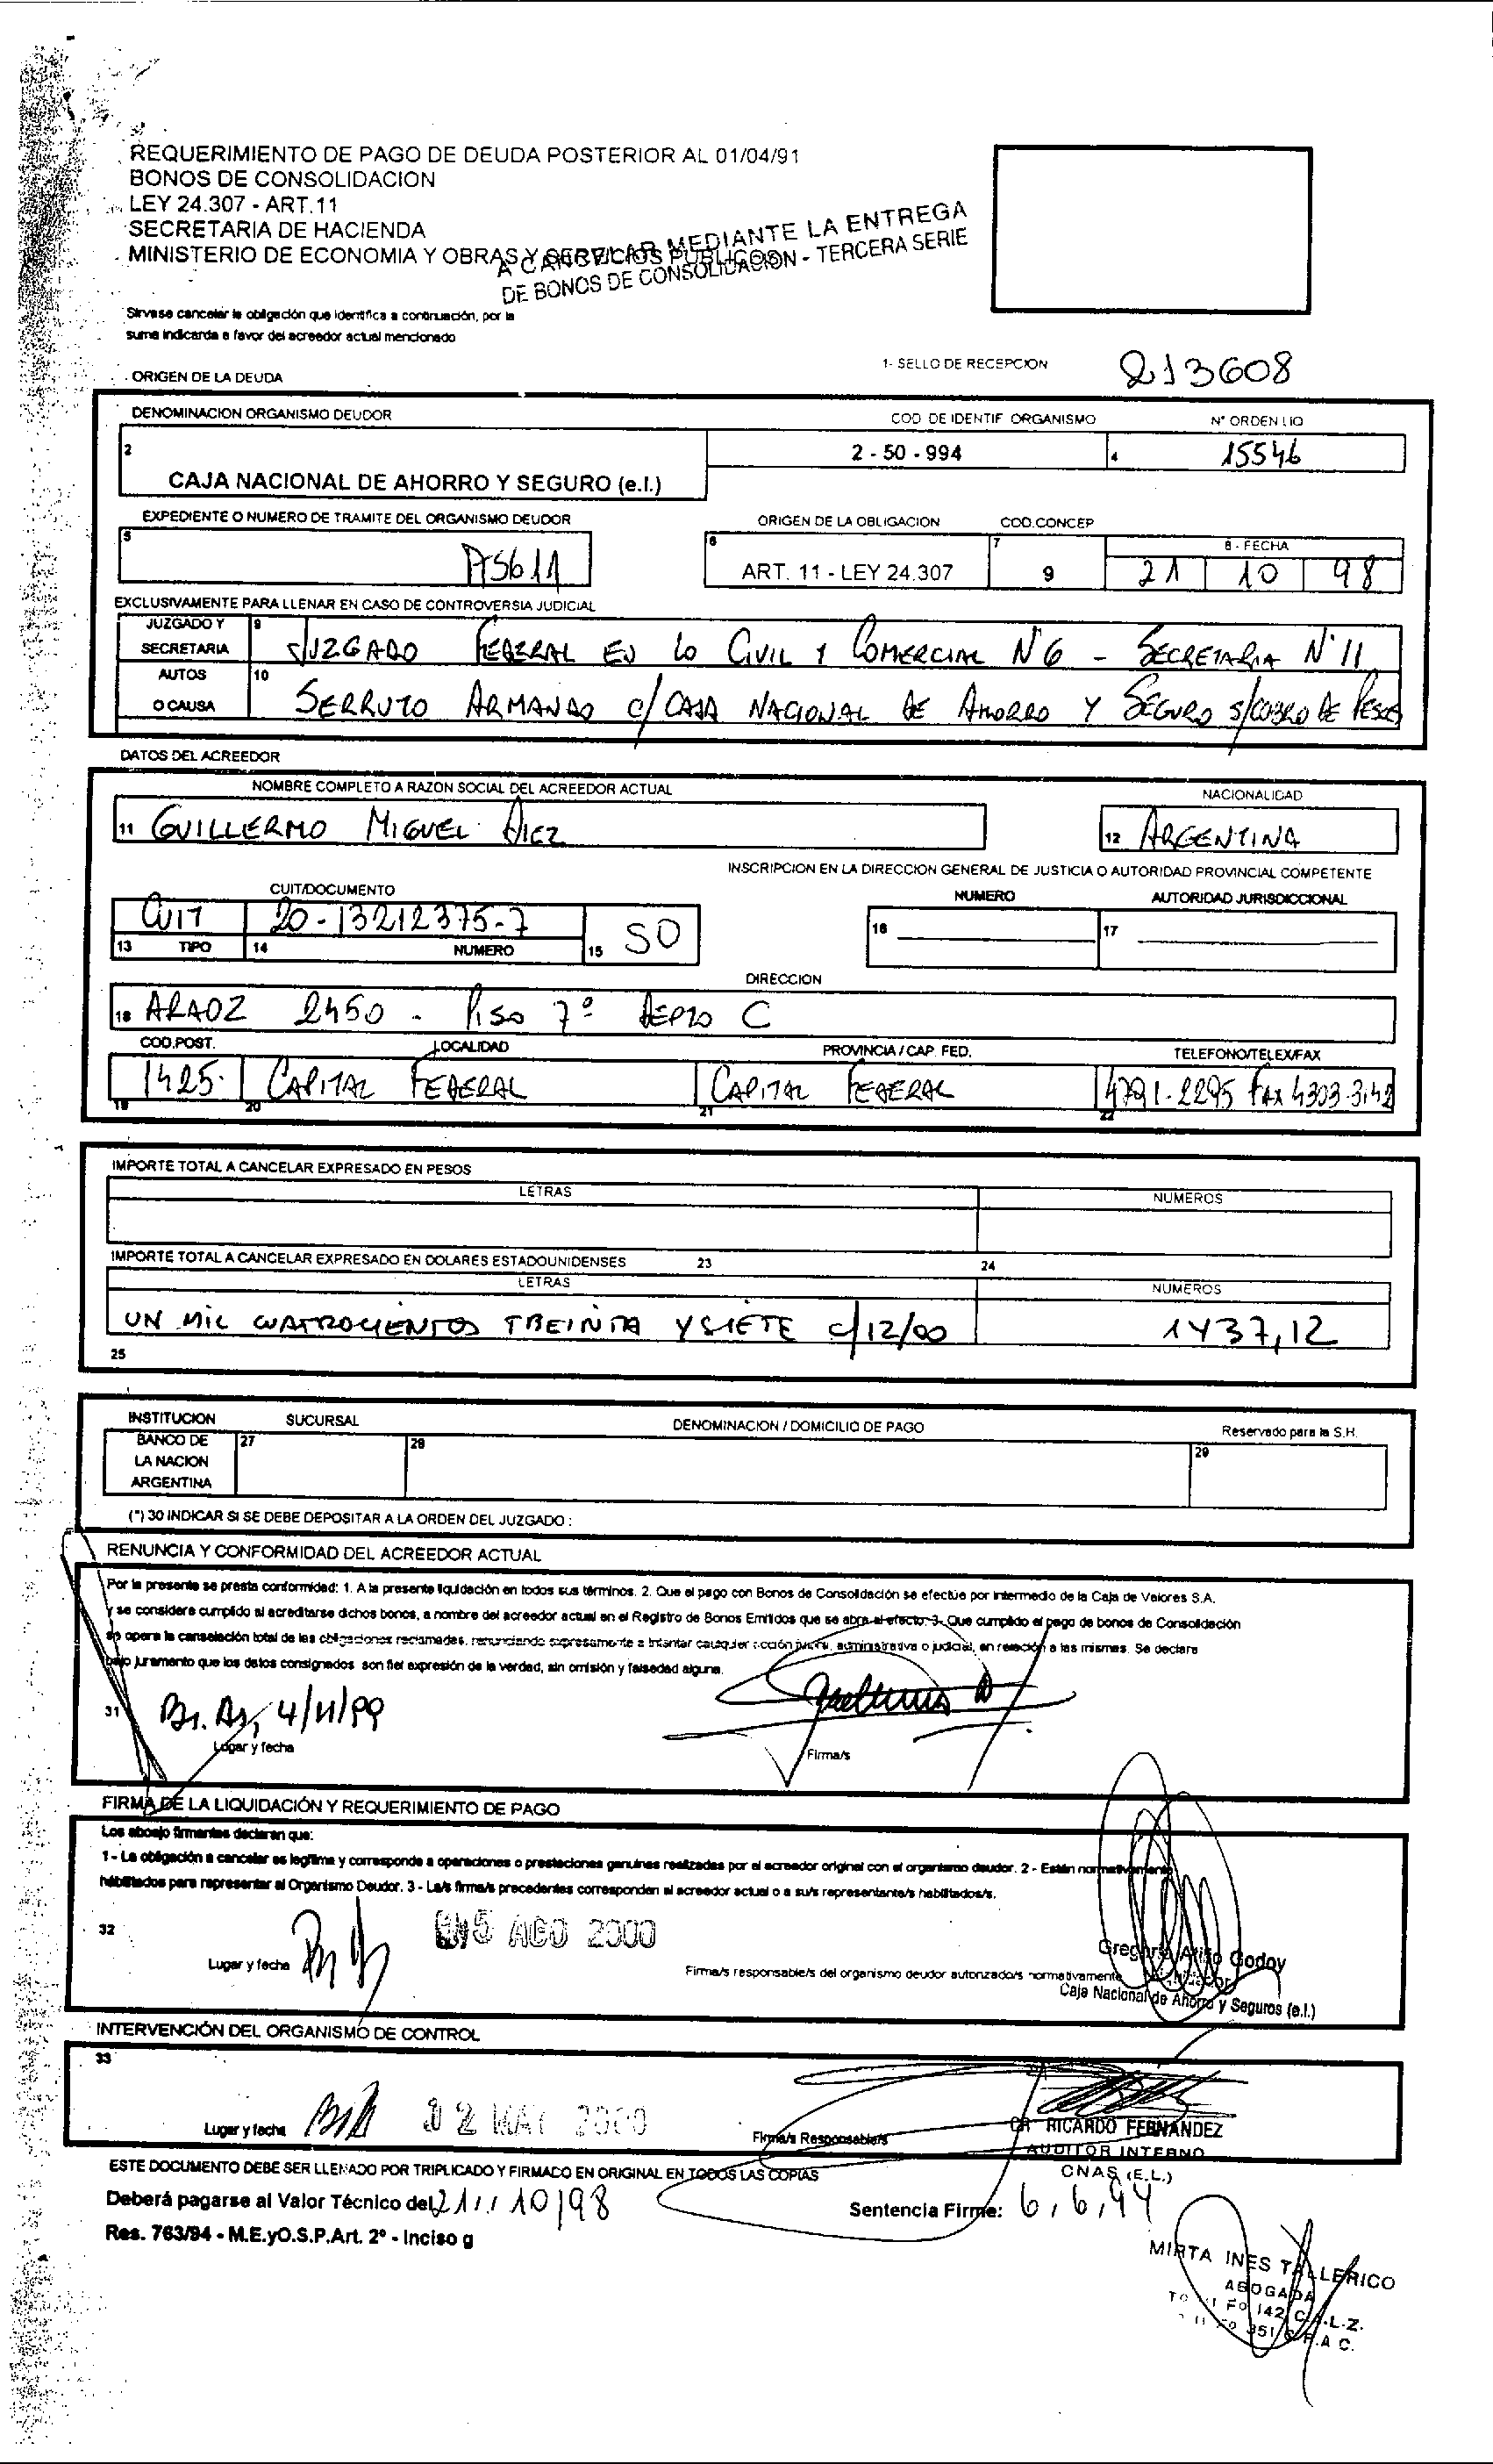 REQUERIMIENTO DE PAGO DE DEUDA POSTERIOR AL 01/04/91
BONOS DE CONSOLIDACION
LEY 24.307 - ART.11
SECRETARIA DE HACIENDA
MINISTERIO DE ECONOMIA Y OBRAS Y SERVICIOS PUBLICOS
A CANCELAR MEDIANTE LA ENTREGA
DE BONOS DE CONSOLIDACION - TERCERA SERIE
Sirvase cancelar la obligación que identifica a continuación, por la
suma indicarda a favor del acreedor actual mencionado
1- SELLO DE RECEPCION 213608
ORIGEN DE LA DEUDA
DENOMINACION ORGANISMO DEUDOR COD DE IDENTIF ORGANISMO N° ORDEN LIQ
2 CAJA NACIONAL DE AHORRO Y SEGURO (e.l.) 2 - 50 - 994 4 15546
EXPEDIENTE O NUMERO DE TRAMITE DEL ORGANISMO DEUDOR ORIGEN DE LA OBLIGACION COD.CONCEP
5 6 ART. 11 - LEY 24.307 7 9 8 - FECHA 21 10 98
EXCLUSIVAMENTE PARA LLENAR EN CASO DE CONTROVERSIA JUDICIAL
JUZGADO Y SECRETARIA 9 JUZGADO FEDERAL EN LO CIVIL Y COMERCIAL N°6 - SECRETARIA N°11
AUTOS O CAUSA 10 SERRUTO ARMANDO C/ CAJA NACIONAL DE AHORRO Y SEGURO S/COBRO DE PESOS
DATOS DEL ACREEDOR
NOMBRE COMPLETO A RAZON SOCIAL DEL ACREEDOR ACTUAL NACIONALIDAD
11 GUILLERMO MIGUEL DIEZ 12 ARGENTINA
INSCRIPCION EN LA DIRECCION GENERAL DE JUSTICIA O AUTORIDAD PROVINCIAL COMPETENTE
CUIT/DOCUMENTO NUMERO AUTORIDAD JURISDICCIONAL
CUIT 20-13212375-7 SO 16 17
13 TIPO 14 NUMERO 15
DIRECCION
18 ARAOZ 2450 - PISO 7° DEPTO C
COD.POST. LOCALIDAD PROVINCIA / CAP. FED. TELEFONO/TELEX/FAX
1425 CAPITAL FEDERAL CAPITAL FEDERAL 4791-2295 FAX 4303-3142
19 20 21 22
IMPORTE TOTAL A CANCELAR EXPRESADO EN PESOS
LETRAS NUMEROS
IMPORTE TOTAL A CANCELAR EXPRESADO EN DOLARES ESTADOUNIDENSES 23 24
LETRAS NUMEROS
UN MIL CUATROCIENTOS TREINTA Y SIETE C/12/00 1437,12
25
INSTITUCION SUCURSAL DENOMINACION / DOMICILIO DE PAGO Reservado para la S.H.
BANCO DE LA NACION ARGENTINA 27 28 29
(*) 30 INDICAR SI SE DEBE DEPOSITAR A LA ORDEN DEL JUZGADO :
RENUNCIA Y CONFORMIDAD DEL ACREEDOR ACTUAL
Por la presente se presta conformidad: 1. A la presente liquidación en todos sus términos. 2. Que el pago con Bonos de Consolidación se efectúe por intermedio de la Caja de Valores S.A.
y se considera cumplido al acreditarse dichos bonos, a nombre del acreedor actual en el Registro de Bonos Emitidos que se abra al efecto. 3- Que cumplido el pago de bonos de Consolidación
se opera la canselación total de las obligaciones reclamadas, renunciando expresamente a intentar cualquier acción administrativa o judicial, en relación a las mismas. Se declara
bajo juramento que los datos consignados son fiel expresión de la verdad, sin omisión y falsedad alguna.
31 Bs. As, 4/11/99
Lugar y fecha Firma/s
FIRMA DE LA LIQUIDACIÓN Y REQUERIMIENTO DE PAGO
Los abajo firmantes declaran que:
1 - La obligación a cancelar es legítima y corresponde a operaciones o prestaciones genuinas realizadas por el acreedor original con el organismo deudor. 2 - Están normativamente
habilitados para representar al Organismo Deudor. 3 - La/s firma/s precedentes corresponden al acreedor actual o a su/s representante/s habilitados/s.
32 Lugar y fecha AGO 2000
Firma/s responsable/s del organismo deudor autorizado/s normativamente
Godoy
Caja Nacional de Ahorro y Seguros (e.l.)
INTERVENCIÓN DEL ORGANISMO DE CONTROL
33
Lugar y fecha 12 MAY 2000 Firma/s Responsable/s
CR RICARDO FERNANDEZ
AUDITOR INTERNO
CNAS (E.L.)
ESTE DOCUMENTO DEBE SER LLENADO POR TRIPLICADO Y FIRMADO EN ORIGINAL EN TODOS LAS COPIAS
Deberá pagarse al Valor Técnico del 21/10/98 Sentencia Firme: 6,6,94
Res. 763/94 - M.E.yO.S.P.Art. 2º - Inciso g
MIRTA INES TALLERICO
ABOGADA